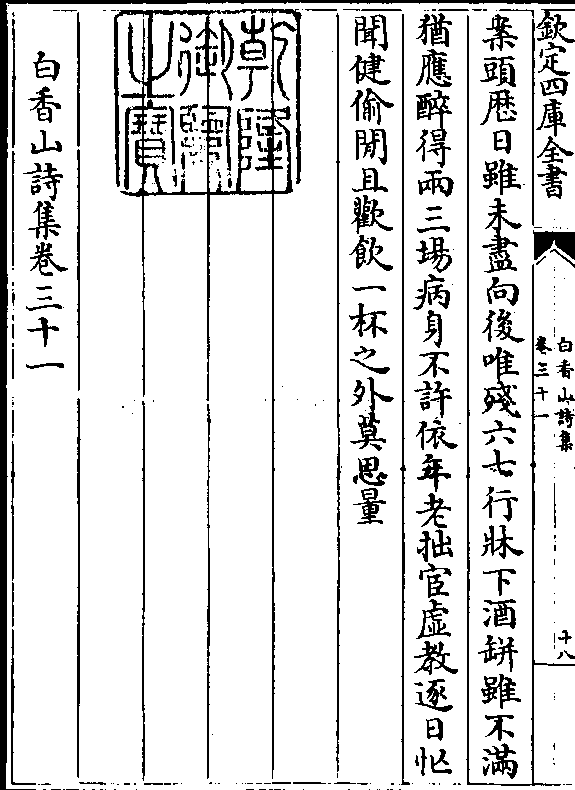 欽定四庫全書
白香山詩集
卷三十一
十八
案頭厯日雖未盡向後唯殘六七行牀下酒缾雖不滿
猶應醉得兩三場病身不許依年老拙宦虛教逐日忙
聞健偷閒且歡飲一杯之外莫思量
乾隆御覽之寶
白香山詩集卷三十一